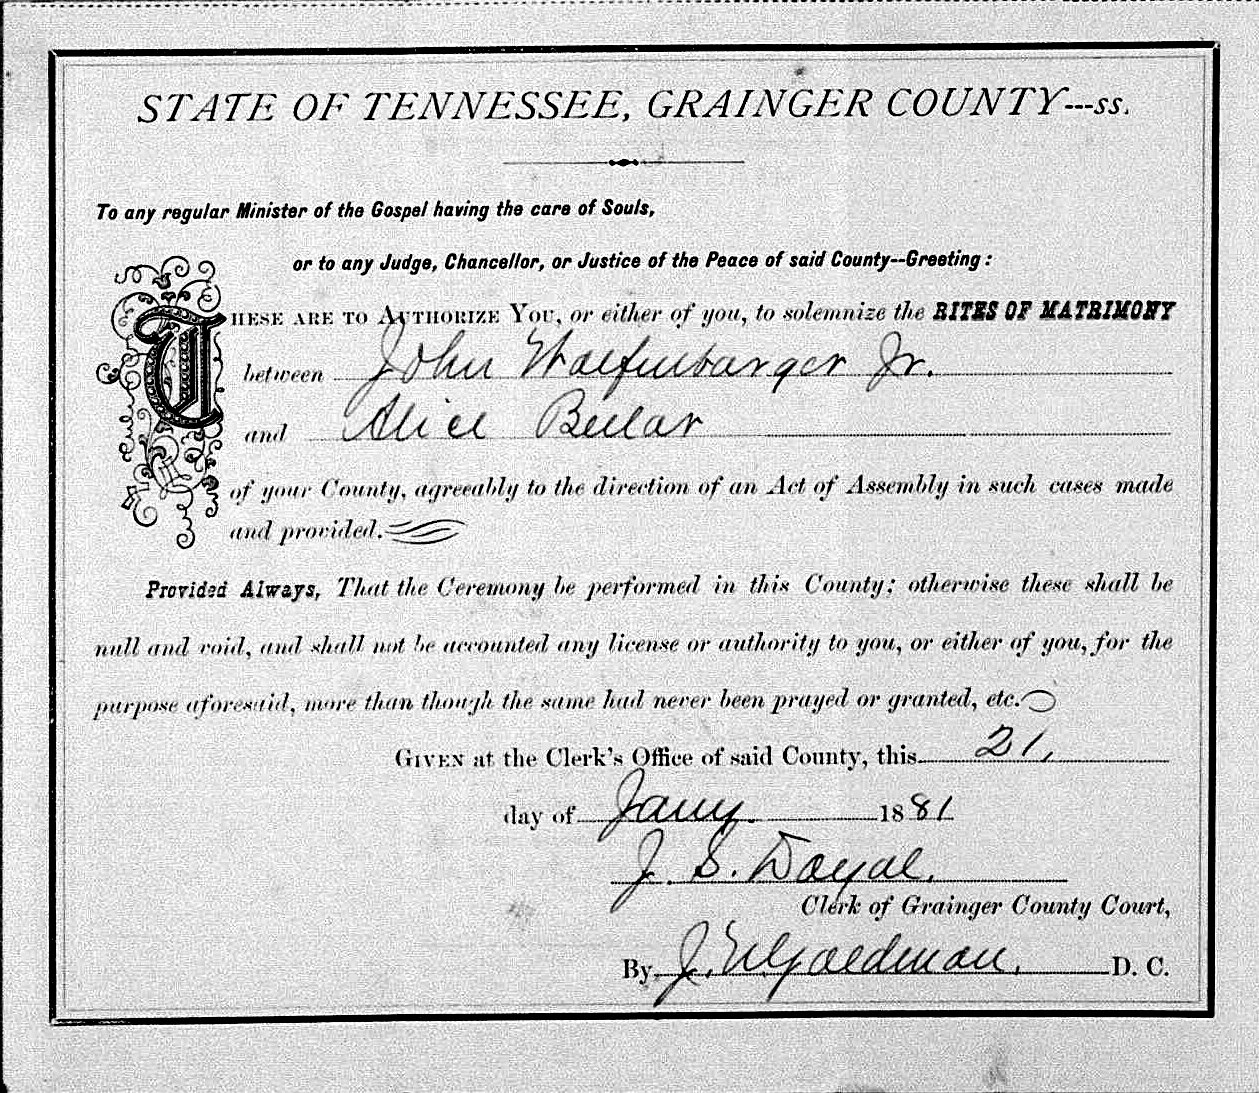 STATE OF TENNESSEE, GRAINGER COUNTY---ss.
To any regular Minister of the Gospel having the care of Souls,
or to any Judge, Chancellor, or Justice of the Peace of said County--Greeting:
THESE ARE TO AUTHORIZE YOU, or either of you, to solemnize the RITES OF MATRIMONY
between John Wolfenbarger Jr.
and Alice Beelar
of your County, agreeably to the direction of an Act of Assembly in such cases made
and provided.
Provided Always, That the Ceremony be performed in this County; otherwise these shall be
null and void, and shall not be accounted any license or authority to you, or either of you, for the
purpose aforesaid, more than though the same had never been prayed or granted, etc.
GIVEN at the Clerk's Office of said County, this 21,
day of Jany. 1881
J. S. Doyal.
Clerk of Grainger County Court,
By J. Goldman. D. C.